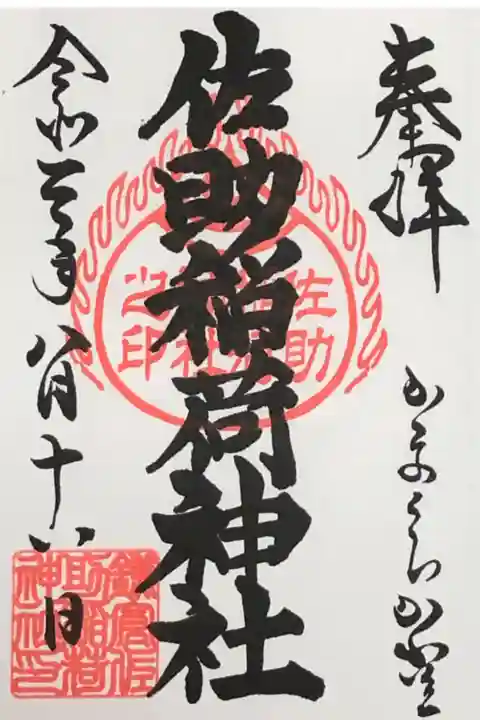 奉拝
かまくら
佐助稲荷神社
令和 年八月十 日
佐助
稲荷
社
之印
鎌倉佐
助稲荷
神社印